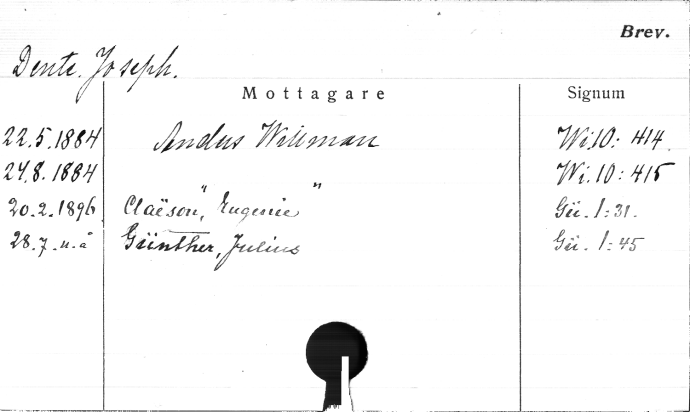 Brev.
Dente. Joseph.
Mottagare Signum
22.5.1884 Anders Willman Wi.10: 414
24.8. 1884 " " Wi. 10: 415
20.2.1896 Claëson, Eugenie Gü. 1:31.
28.7 u.å Günther, Julius Gü. 1:45